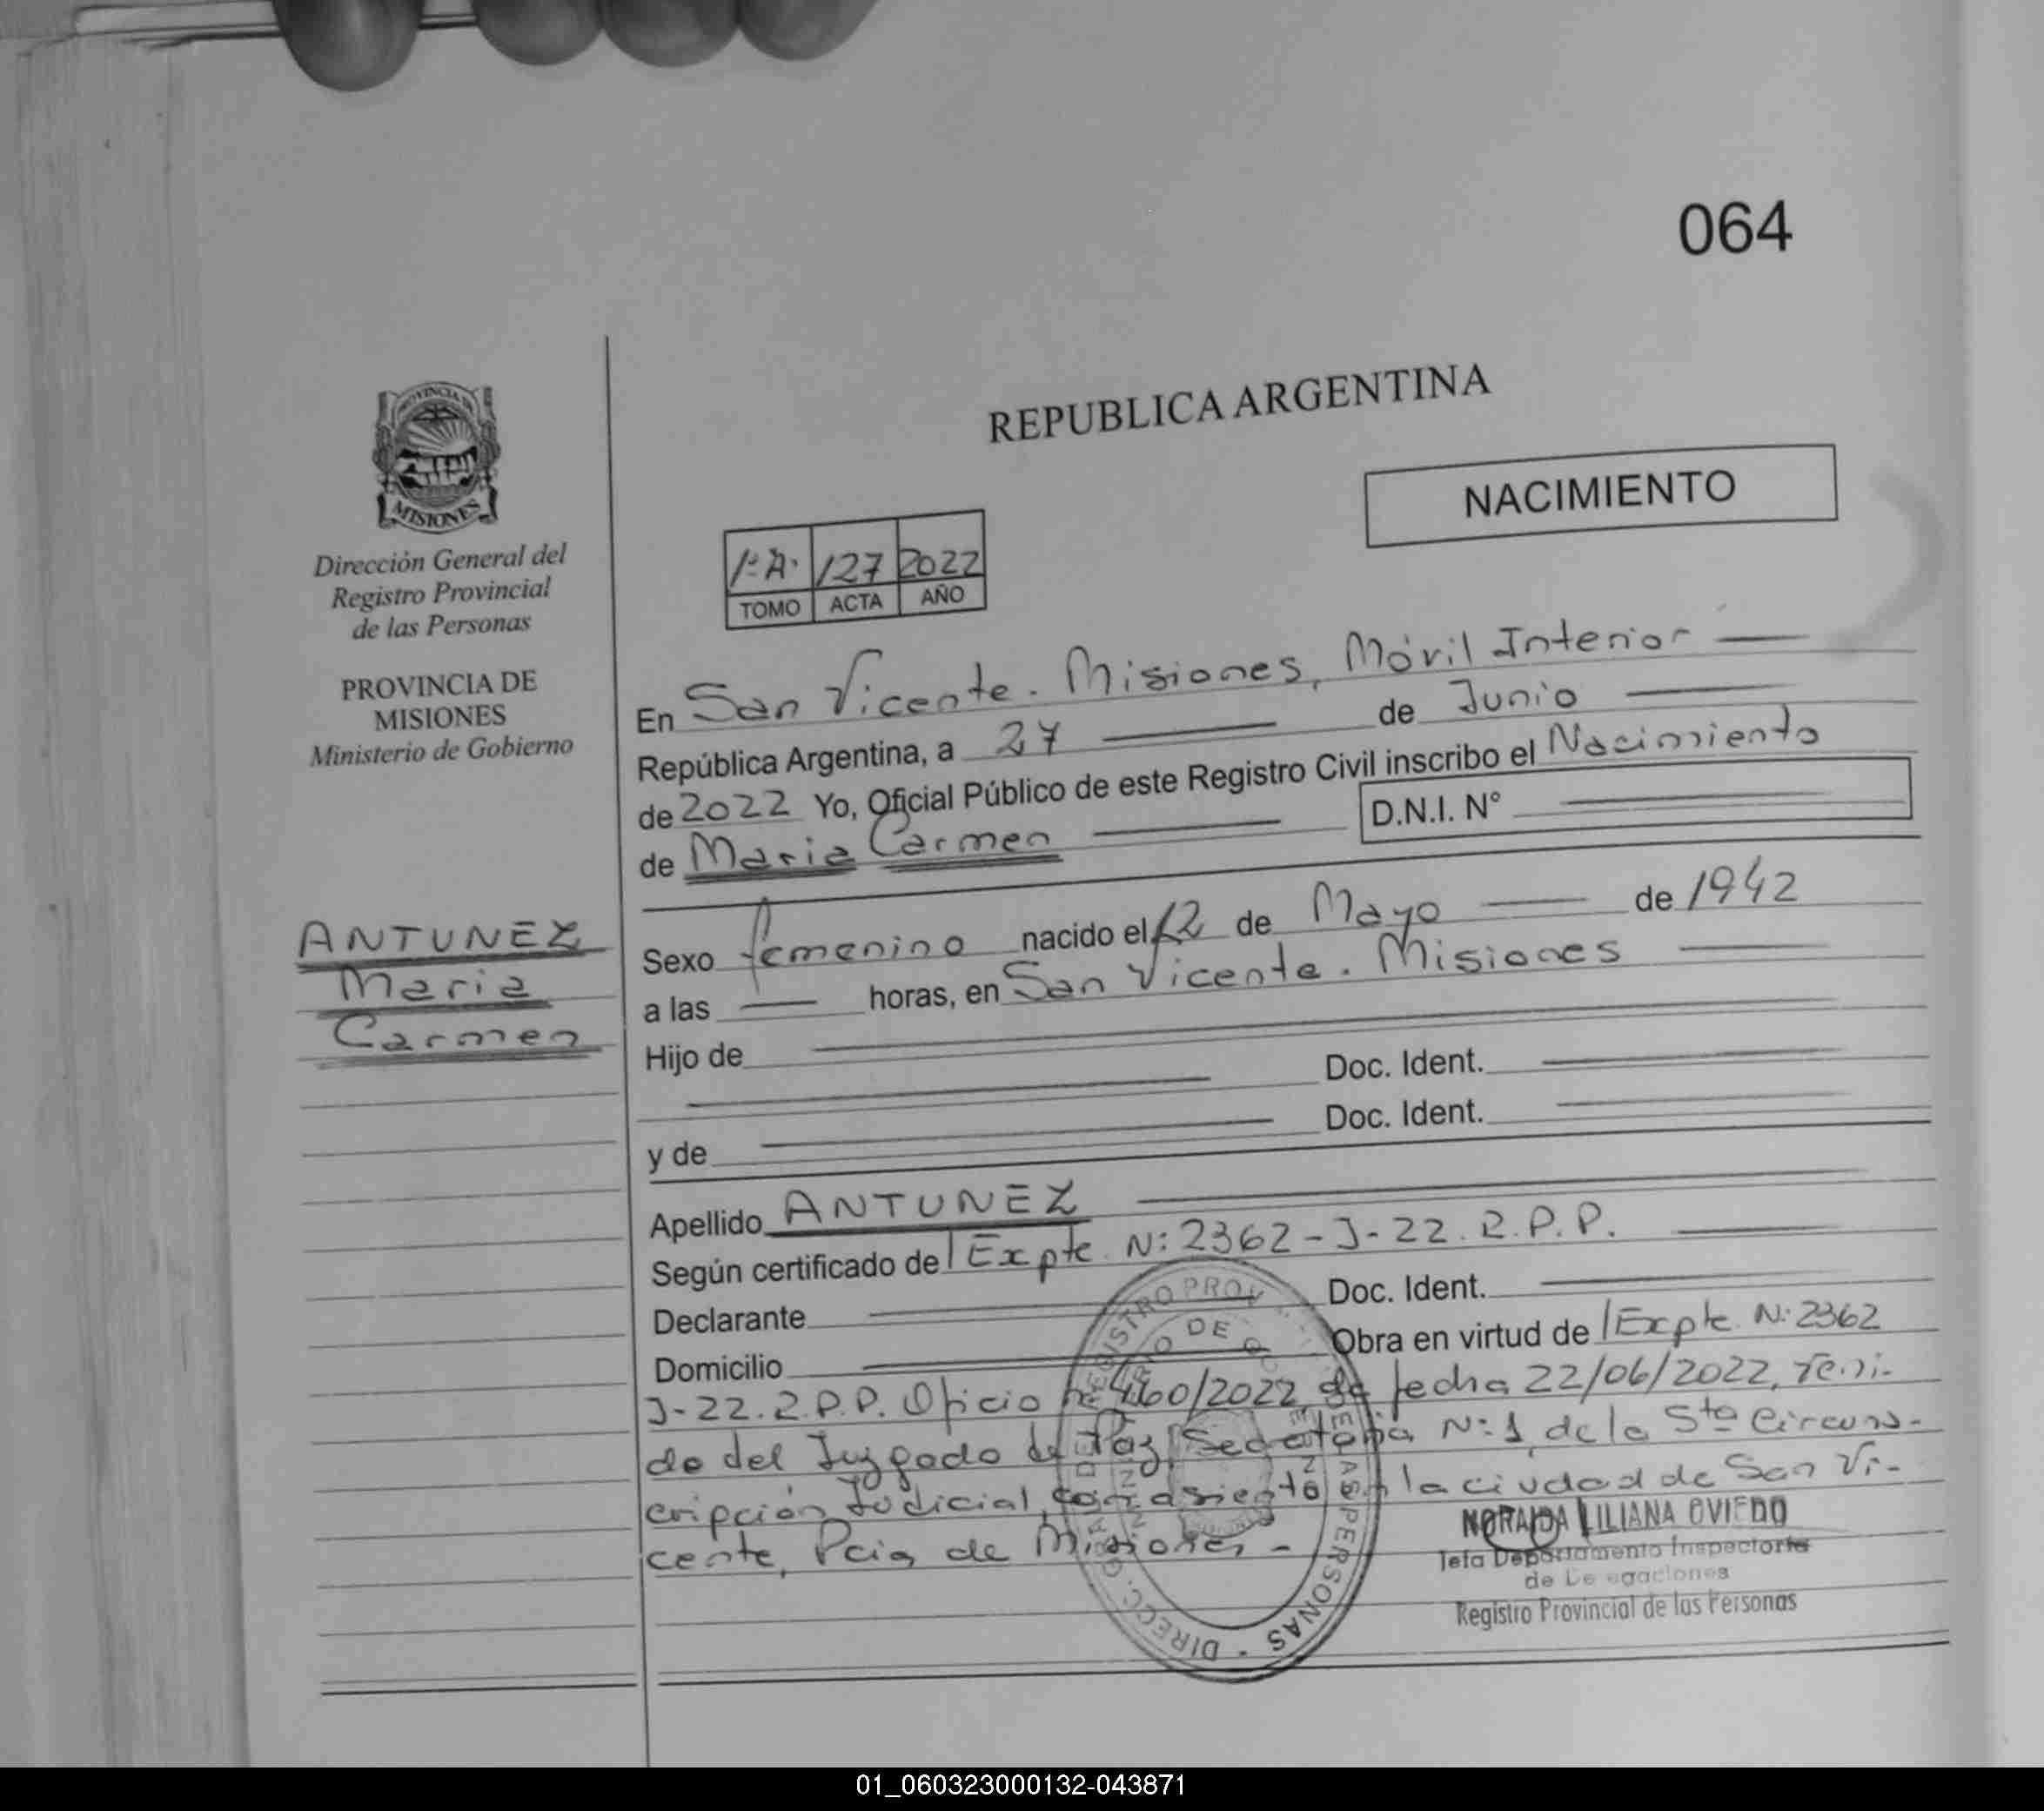 064
REPUBLICA ARGENTINA
NACIMIENTO
PROVINCIA DE
MISIONES
Dirección General del
Registro Provincial
de las Personas
PROVINCIA DE
MISIONES
Ministerio de Gobierno
1º A. 127 2022
TOMO ACTA AÑO
En San Vicente. Misiones, Móvil Interior
República Argentina, a 27 de Junio
de 2022 Yo, Oficial Público de este Registro Civil inscribo el Nacimiento
de Maria Carmen D.N.I. N°
ANTUNEZ
Maria
Carmen
Sexo femenino nacido el 12 de Mayo de 1942
a las horas, en San Vicente. Misiones
Hijo de
Doc. Ident.
y de Doc. Ident.
Apellido ANTUNEZ
Según certificado de Expte. N: 2362-J-22. R.P.P.
Declarante Doc. Ident.
Domicilio Obra en virtud de Expte. N: 2362
J-22. R.P.P. Oficio 460/2022 de fecha 22/06/2022, veni-
do del Juzgado de Paz, Secretaria N: 1, de la 5ta Circuns-
cripción Judicial, con asiento en la ciudad de San Vi-
cente, Pcia de Misiones.-
NORAIDA LILIANA OVIEDO
Jefa Departamento Inspectoria
de Delegaciones
Registro Provincial de las Personas
DIRECC. GRAL DE REGISTRO PROV. DE LAS PERSONAS
01_060323000132-043871